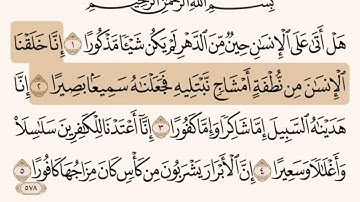 بِسْمِ اللَّهِ الرَّحْمَٰنِ الرَّحِيمِ
هَلْ أَتَىٰ عَلَى الْإِنسَانِ حِينٌ مِّنَ الدَّهْرِ لَمْ يَكُن شَيْئًا مَّذْكُورًا ١ إِنَّا خَلَقْنَا
الْإِنسَانَ مِن نُّطْفَةٍ أَمْشَاجٍ نَّبْتَلِيهِ فَجَعَلْنَاهُ سَمِيعًا بَصِيرًا ٢ إِنَّا
هَدَيْنَاهُ السَّبِيلَ إِمَّا شَاكِرًا وَإِمَّا كَفُورًا ٣ إِنَّا أَعْتَدْنَا لِلْكَافِرِينَ سَلَاسِلَا
وَأَغْلَالًا وَسَعِيرًا ٤ إِنَّ الْأَبْرَارَ يَشْرَبُونَ مِن كَأْسٍ كَانَ مِزَاجُهَا كَافُورًا ٥
٥٧٨